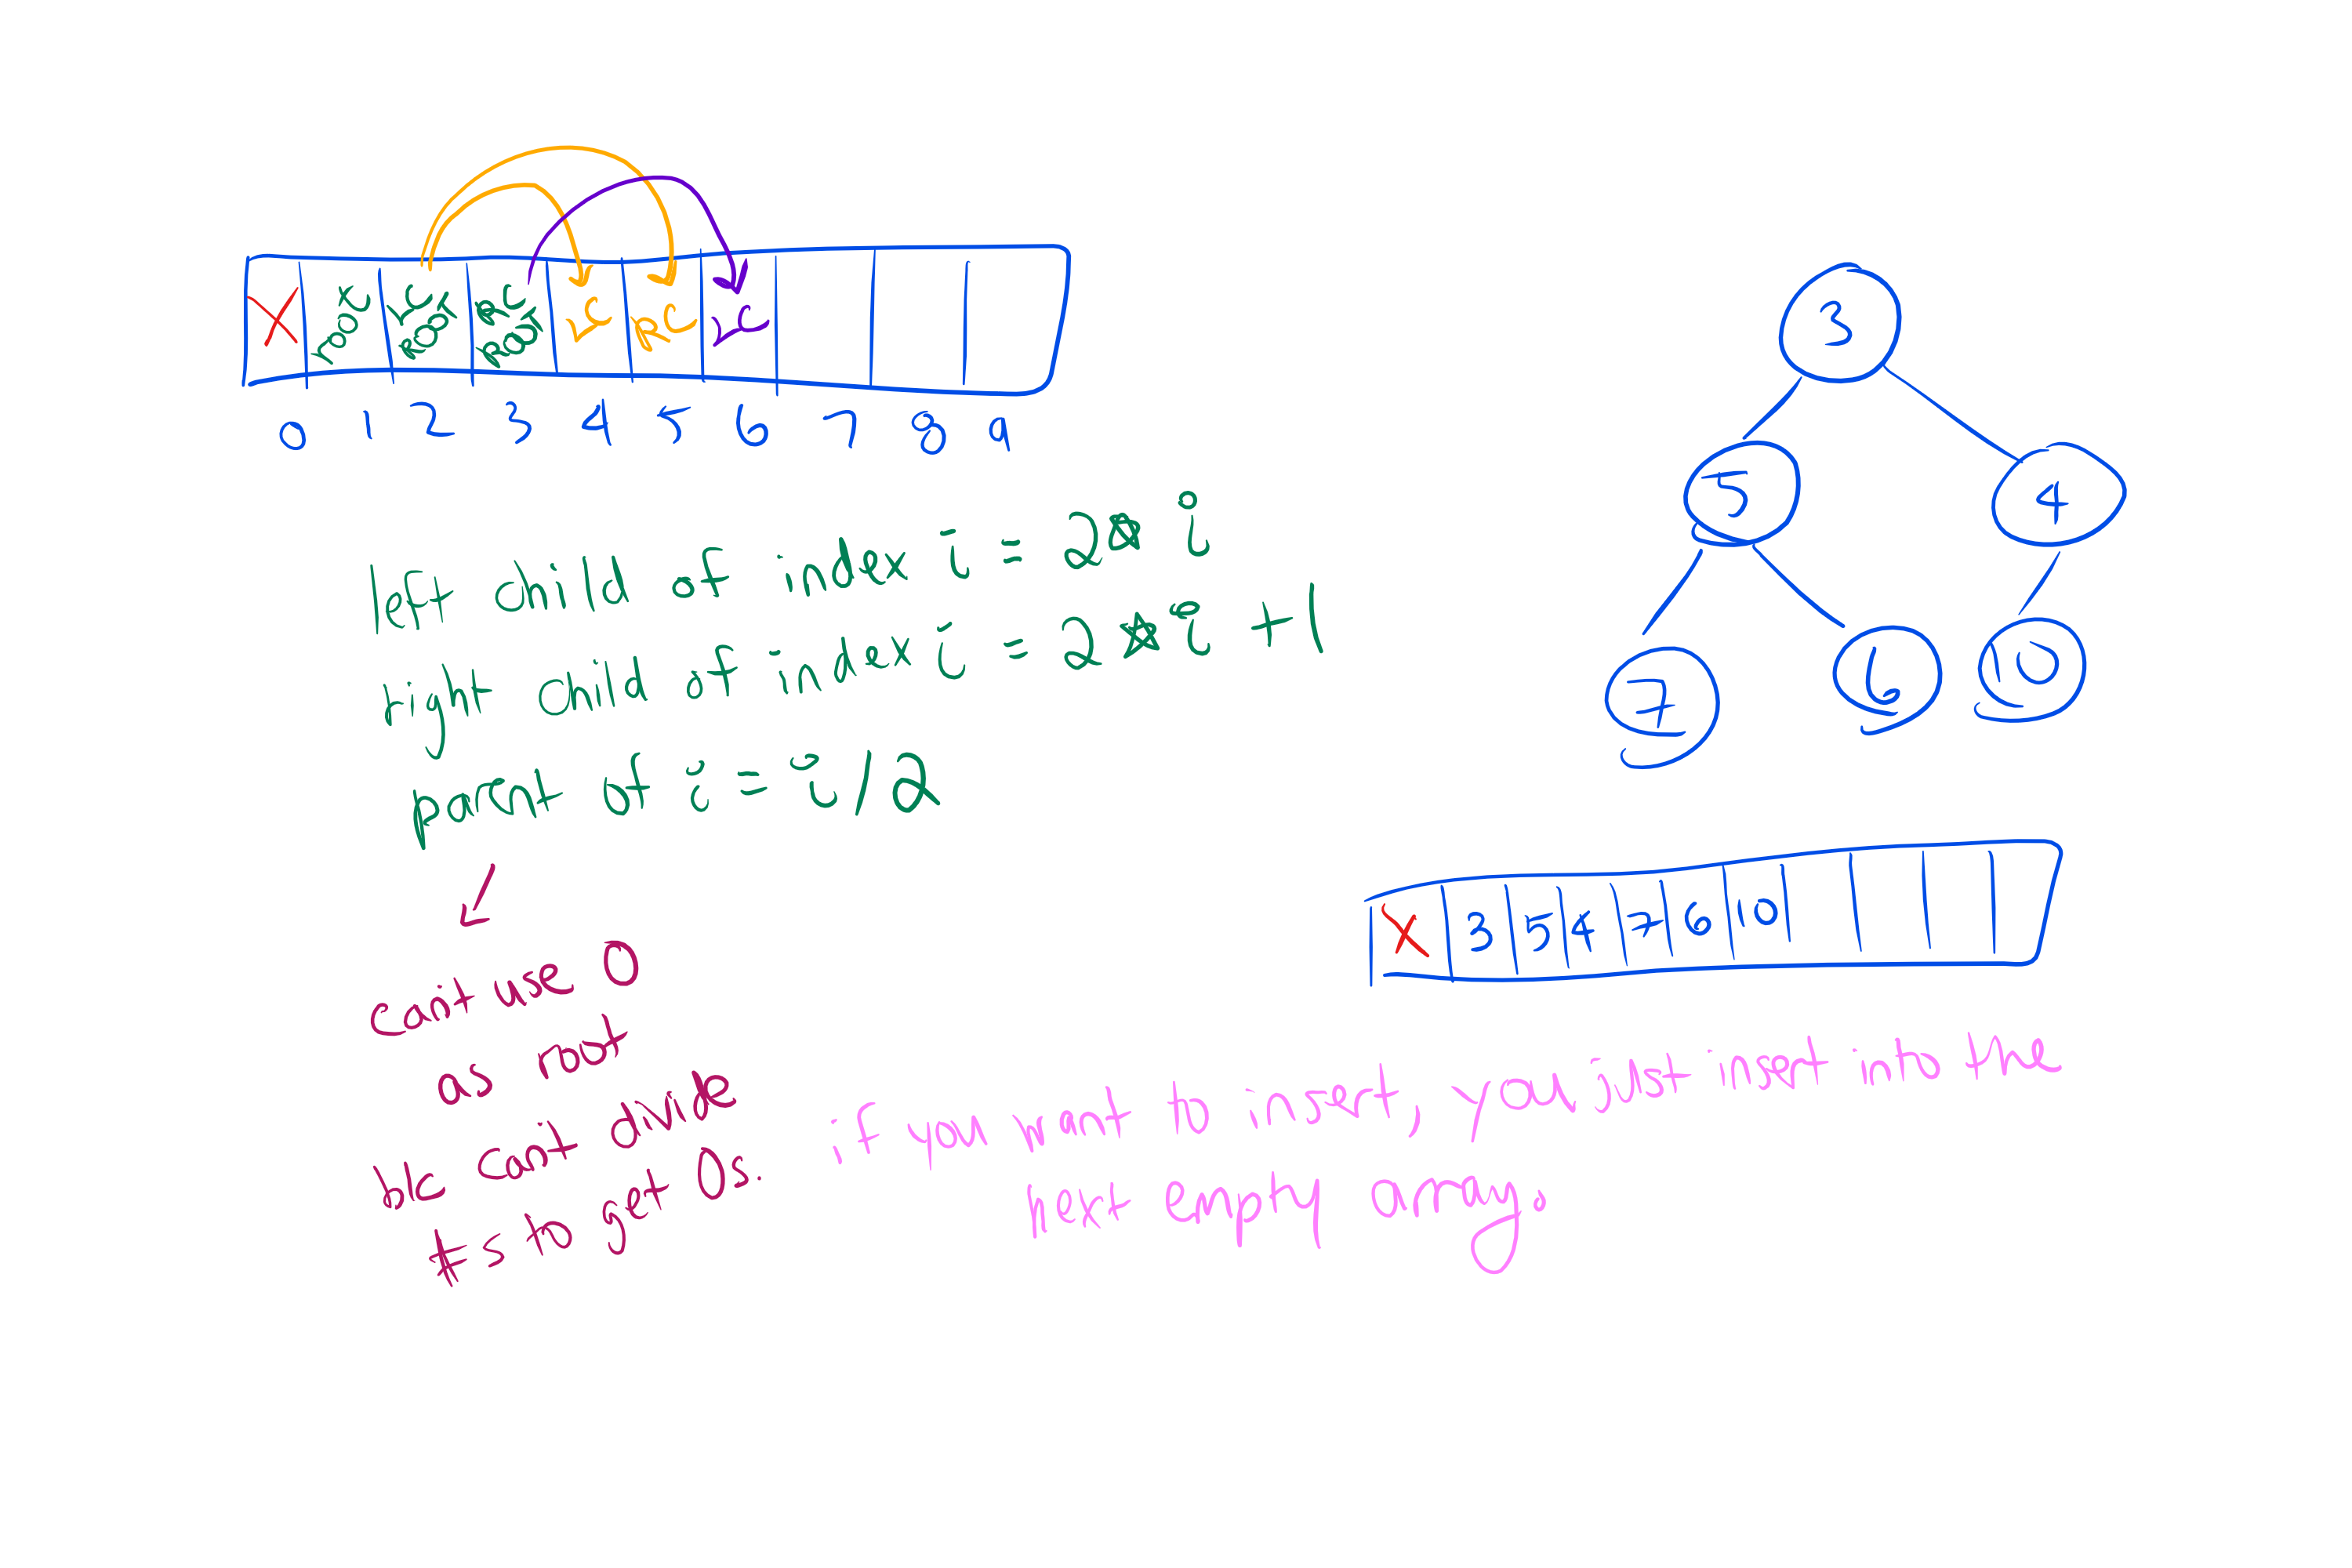 X root LC root RC root LC RC LC
0 1 2 3 4 5 6 7 8 9
left child of index i = 2 * i
right child of index i = 2 * i + 1
parent of i = i / 2
can't use 0
as root
bc can't divide
#s to get 0s.
3
5 4
7 6 10
X 3 5 4 7 6 10
if you want to insert, you just insert into the
next empty array.